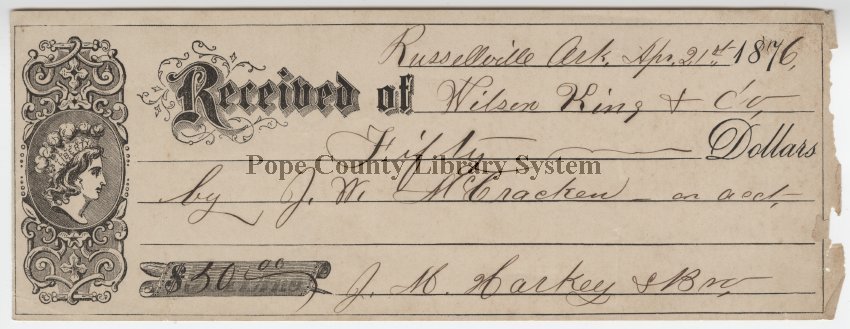 Russellville Ark. Apr. 21st 1876,
Received of Wilson King & Co,
Fifty Dollars
Pope County Library System
by J. W. McCracken - on acct.
$50.00 J. M. Harkey & Bro,